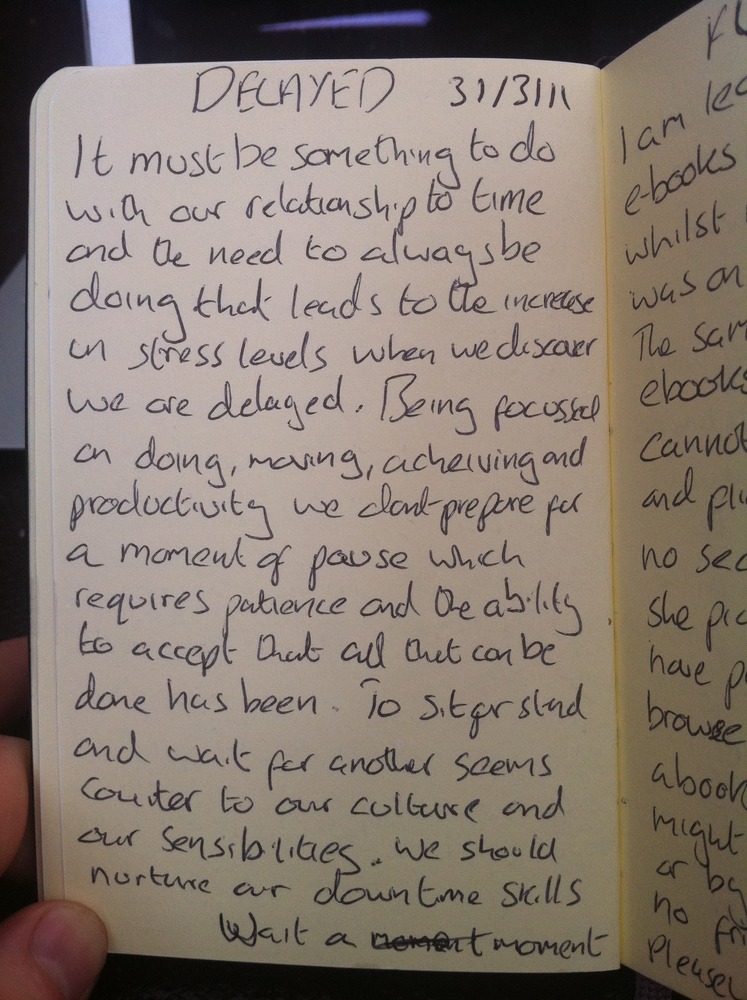 DELAYED 31/3/11
It must be something to do
with our relationship to time
and the need to always be
doing that leads to the increase
in stress levels when we discover
we are delayed. Being focussed
on doing, moving, acheiving and
productivity we dont prepare for
a moment of pause which
requires patience and the ability
to accept that all that can be
done has been. To sit or stand
and wait for another seems
couter to our culture and
our sensibilities. We should
nurture our downtime skills
Wait a moment moment
I am lea
e-books
whilst
was on
The sam
ebooks
cannot
and pl
no sec
she pic
have p
browse
a book
might
or by
no fri
Please